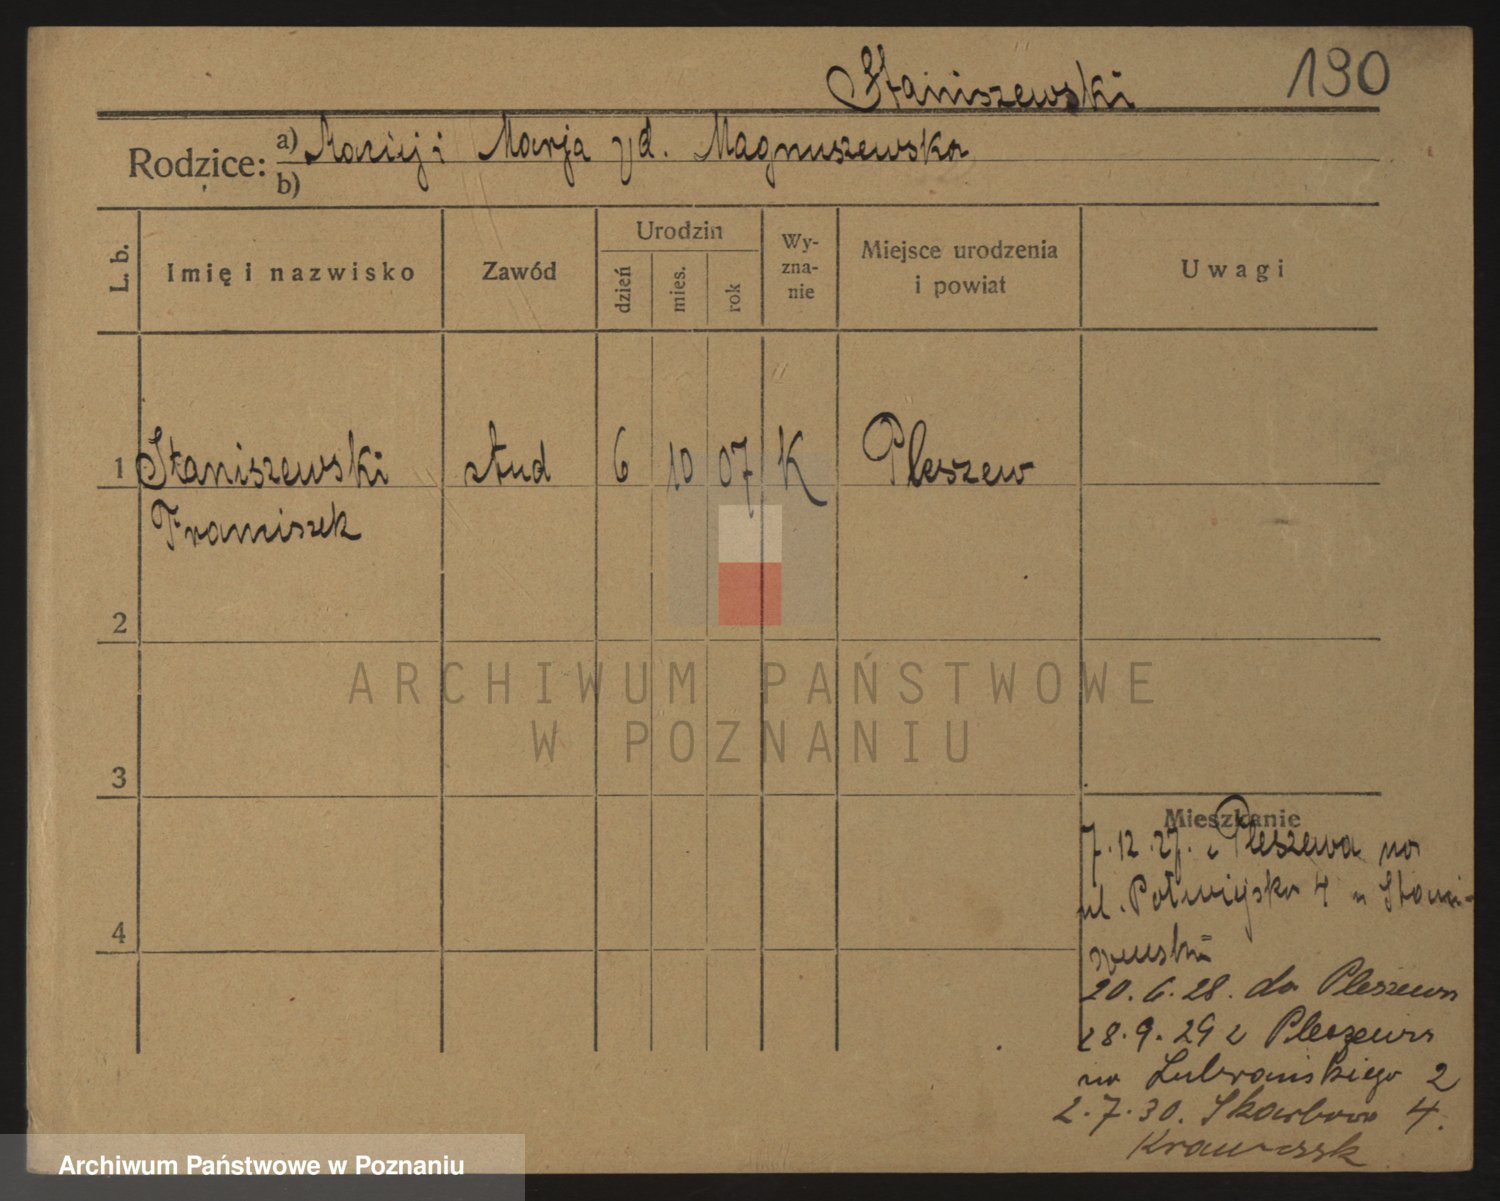 Staniszewski
190
Rodzice: a) Maciej i Marja zd. Magnuszewska
b)
L. b.
Imię i nazwisko
Zawód
Urodzin
dzień
mies.
rok
Wy-
zna-
nie
Miejsce urodzenia
i powiat
Uwagi
1 Staniszewski stud 6 10 07 K Pleszew
Franciszek
2
3
4
Mieszkanie
7.12.27. z Pleszewa na
ul. Półwiejska 4 u Stani-
szewski
20.6.28. do Pleszewa
28.9.29 z Pleszewa
na Lubrańskiego 2
2.7.30. Skarbowa 4.
ARCHIWUM PAŃSTWOWE
W POZNANIU
Archiwum Państwowe w Poznaniu